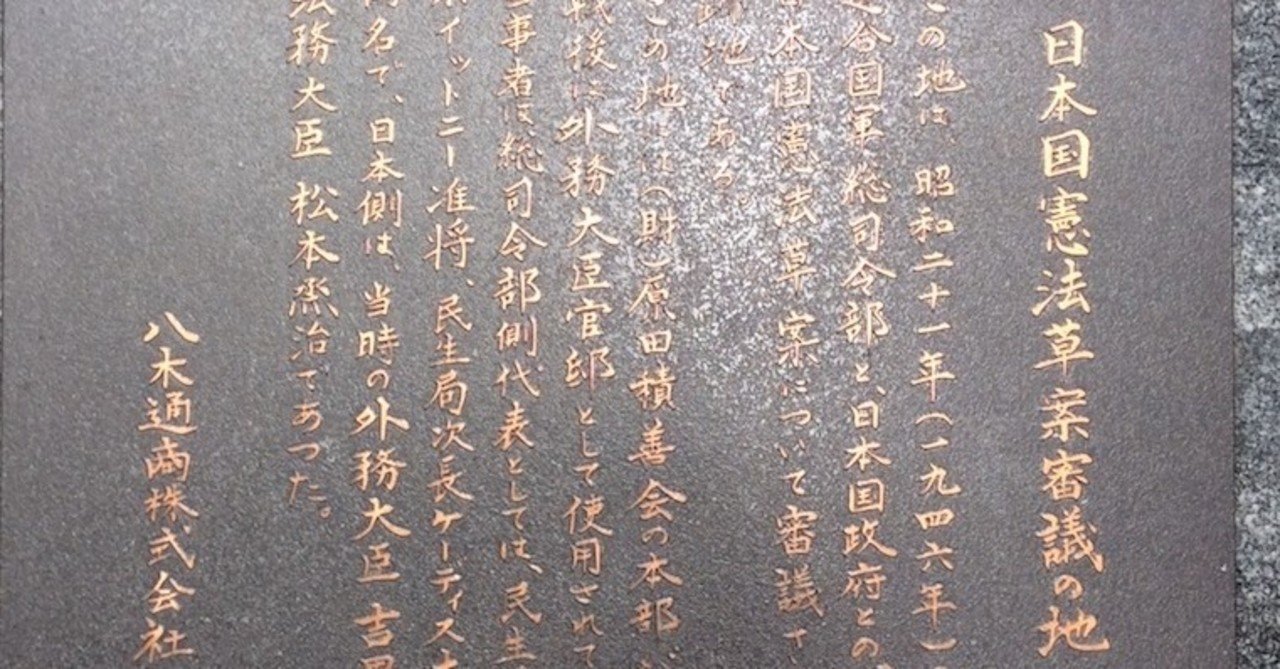 日本国憲法草案審議の地
この地は、昭和二十一年(一九四六年)
連合国軍総司令部と、日本国政府との
日本国憲法草案について審議
跡地である。
この地には(財)原田積善会の本部が
戦後に外務大臣官邸として使用されて
事者は、総司令部側代表としては、民生
イットニー准将、民生局次長ケーディス大
名で、日本側は、当時の外務大臣 吉
法務大臣 松本烝治であつた。
八木通商株式会社